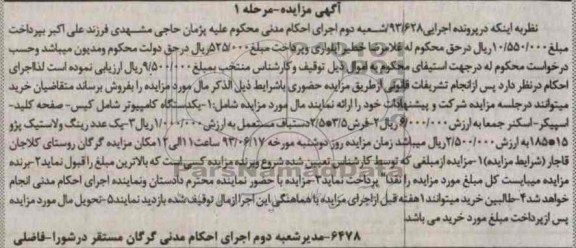 آگهی مزایده-مرحله ۱
نظر به اینکه در پرونده اجرایی ۹۳/۶۲۸/شعبه دوم اجرای احکام مدنی محکوم علیه پژمان حاجی مشهدی فرزند علی اکبر بپرداخت
مبلغ ۱۰/۵۵۰/۰۰۰ ریال در حق محکوم له غلامرضا خطیر ایلواری و پرداخت مبلغ ۵۲۵/۰۰۰ ریال در حق دولت محکوم و مدیون میباشد و حسب
درخواست محکوم له در جهت استیفای محکوم به اموال ذیل توقیف و کارشناس منتخب بمبلغ ۹/۵۰۰/۰۰۰ ریال ارزیابی نموده است لذا اجرای
احکام در نظر دارد پس از انجام تشریفات قانونی از طریق مزایده حضوری باشرایط ذیل الذکر مال مورد مزایده را بفروش برساند متقاضیان خرید
میتوانند در جلسه مزایده شرکت و پیشنهادات خود را ارائه نمایند مال مورد مزایده شامل: ۱-یکدستگاه کامپیوتر شامل کیس- صفحه کلید-
اسپیکر-اسکنر جمعا به ارزش ۶/۰۰۰/۰۰۰ ریال ۲-فرش ۳/۵*۲/۵ دستباف مستعمل به ارزش ۱/۰۰۰/۰۰۰ ریال ۳-یک عدد رینگ و لاستیک پژو
۱۵*۱۸۵ به ارزش ۲/۵۰۰/۰۰۰ ریال میباشد زمان مزایده روز دوشنبه مورخه ۹۳/۰۶/۱۷ ساعت ۱۱ الی ۱۲ مکان مزایده گرگان روستای کلاجان
قاجار (شرایط مزایده) ۱-مزایده از مبلغی که توسط کارشناس تعیین شده شروع و برنده مزایده کسی است که بالاترین مبلغ را قبول نماید ۲-برنده
مزایده میبایست کل مبلغ مورد مزایده را نقدا پرداخت نماید ۳-مزایده با حضور نماینده محترم دادستان و نماینده اجرای احکام مدنی انجام
خواهد شد ۴-طالبین خرید میتوانند ۱ هفته قبل از اجرای مزایده با هماهنگی این اجرا از مال توقیف شده بازدید نمایند ۵-تحویل مال مورد مزایده
پس از پرداخت مبلغ مورد خرید می باشد
۶۴۷۸-مدیر شعبه دوم اجرای احکام مدنی گرگان مستقر در شورا-فاضلی